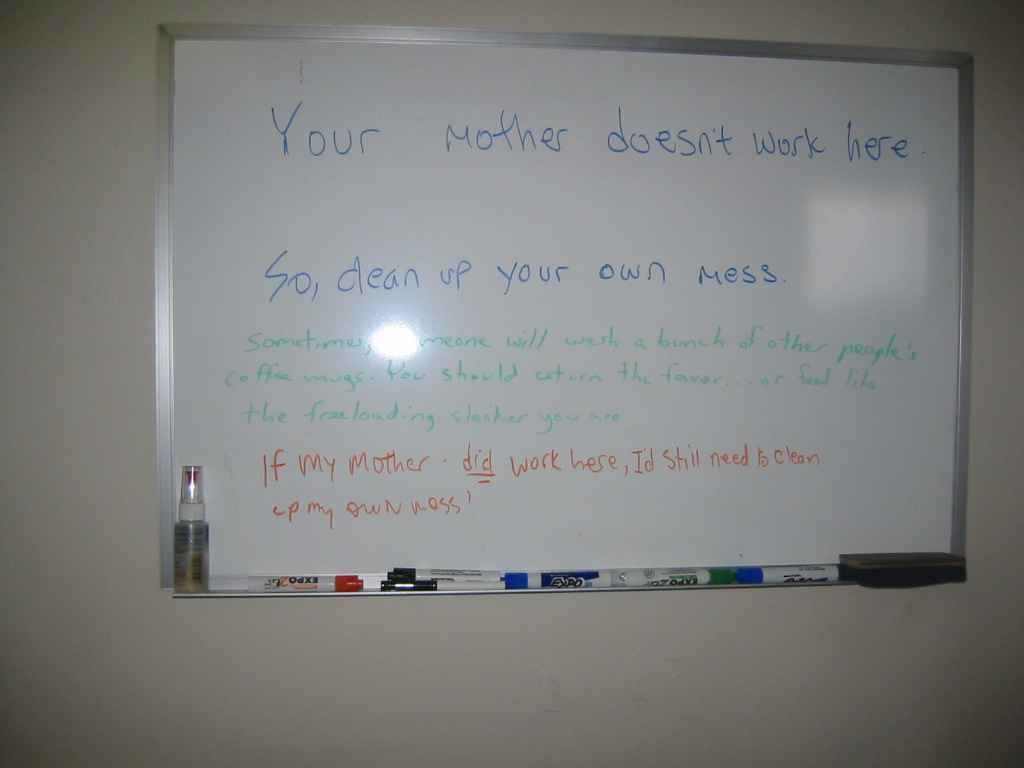 Your mother doesn't work here.
So, clean up your own mess.
Sometimes, someone will wash a bunch of other people's
coffee mugs. You should return the favor.... or feel like
the freeloading slacker you are
If my mother did work here, I'd still need to clean
up my own mess!
EXPO2
EXPO
EXPO2